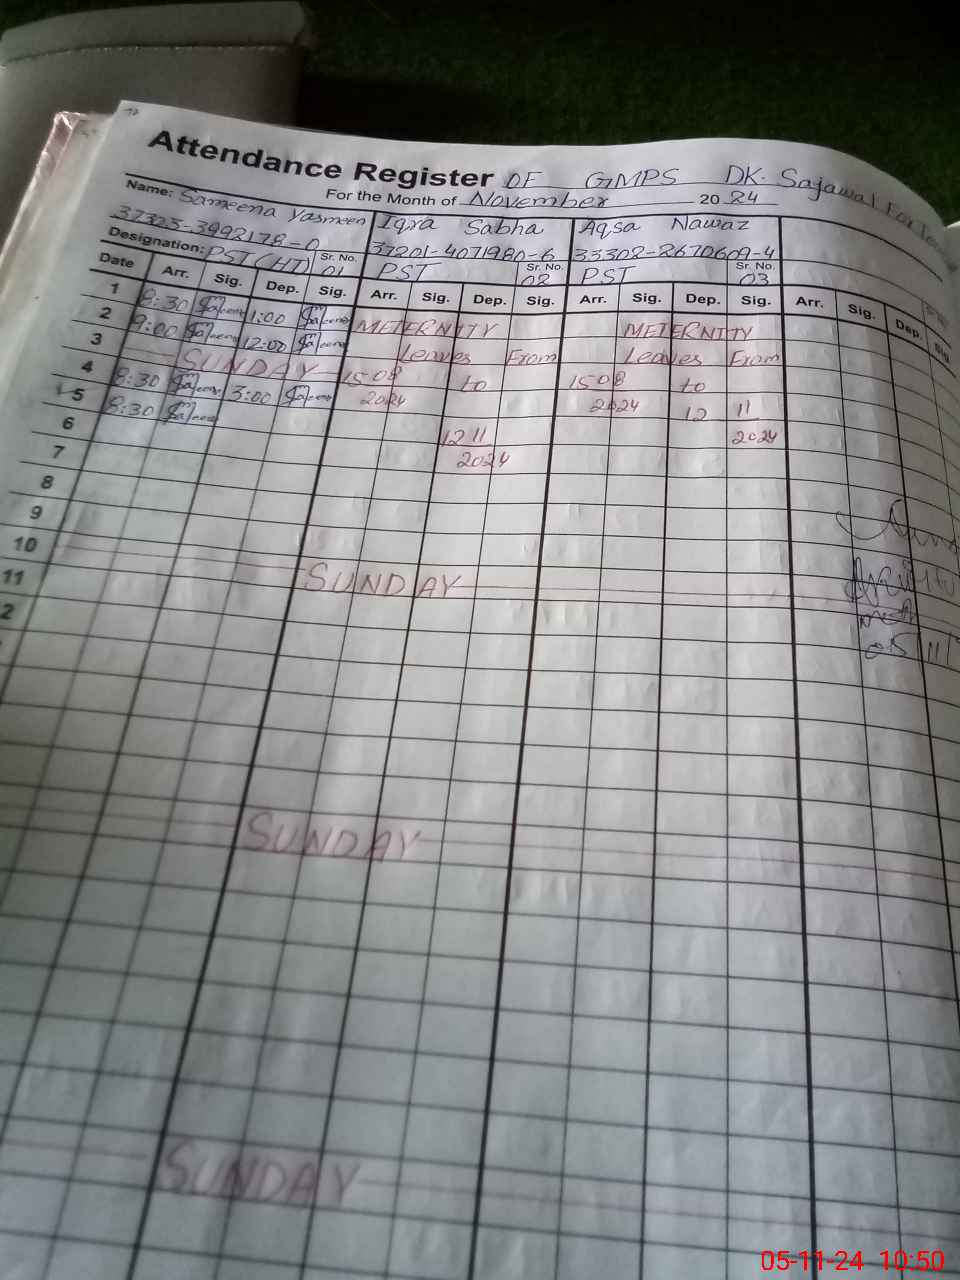 Attendance Register OF GMPS DK. Sajawal
For the Month of November 2024
Name: Sameena Yasmeen Iqra Sabha Aqsa Nawaz
37325-3992178-0 37201-4071980-6 33302-2670609-4
Designation: PST (HT) Sr. No. 01 PST Sr. No. 02 PST Sr. No. 03
Date Arr. Sig. Dep. Sig. Arr. Sig. Dep. Sig. Arr. Sig. Dep. Sig. Arr. Sig. Dep. Sig
1 8:30 1:00 METERNITY METERNITY
2 9:00 12:00 Leaves From Leaves From
3 SUNDAY 1508 to 1508 to
4 8:30 3:00 2024 2024 12 11
5 8:30 12 11 2024
6 2024
7
8
9
10 SUNDAY
11
2
05 11
SUNDAY
SUNDAY
05-11-24 10:50